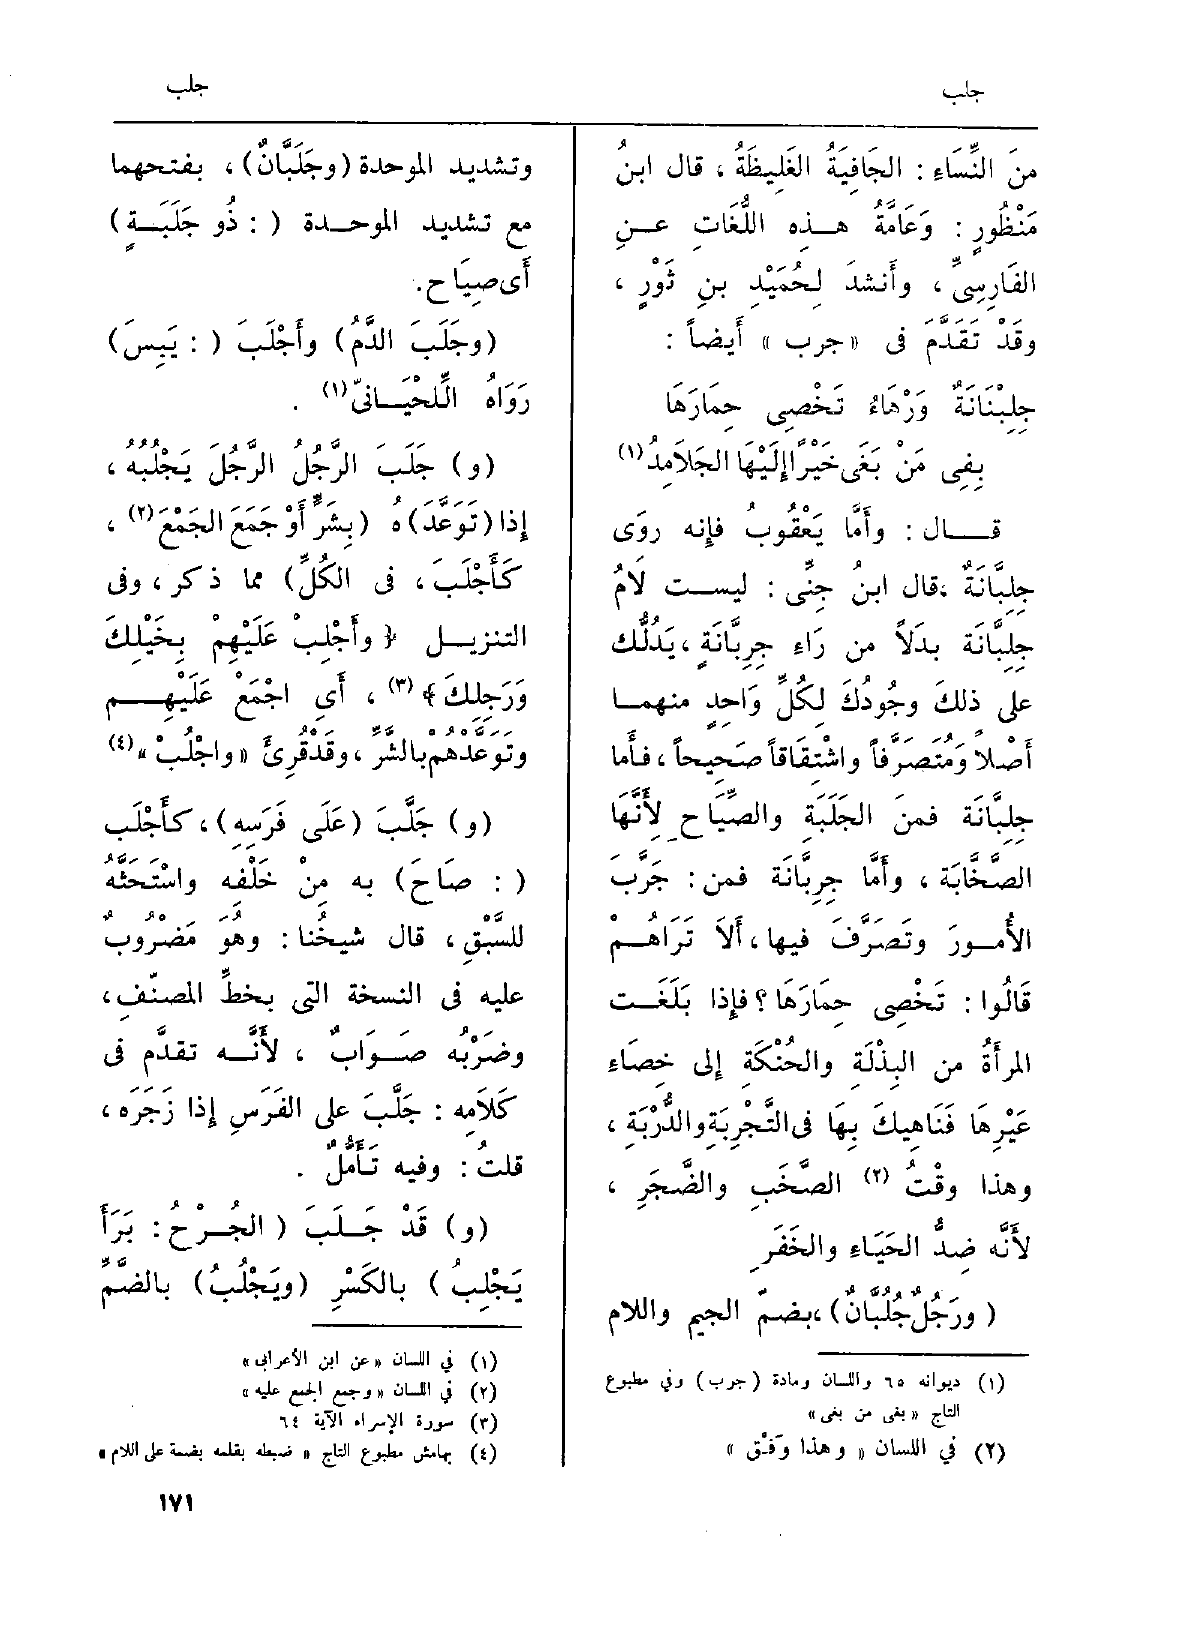 جلب
جلب
منَ النِّسَاءِ : الجَافِيَةُ الغَلِيظَةُ ، قال ابنُ
مَنْظُورٍ : وَعَامَّةُ هــذه اللُّغَاتِ عــنِ
الفَارِسِىِّ ، وأَنشدَ لِحُمَيْدِ بنِ ثَوْرٍ ،
وقَدْ تَقَدَّم فى «جرب» أَيضاً :
جِلِبْنَانَةٌ وَرْهَاءُ تَخْصِى حِمَارَهَا
بِفِى مَنْ بَغَى خَيْرًا إِلَيْهَا الجَلَامِدُ (١)
قـــال : وأَمَّا يَعْقُوبُ فإِنه روَى
جِلِبَّانَةٌ ،قال ابنُ جِنِّى : ليســت لَامُ
جِلِبَّانَة بدَلاً من رَاءِ جِرِبَّانَةٍ ،يَدُلُّك
على ذلكَ وجُودُكَ لِكُلِّ وَاحِدٍ منهمــا
أَصْلاً وَمُتَصَرَّفاً واشْتِقَاقاً صَحِيحاً ، فأَما
جِلِبَّانَة فمنَ الجَلَبَةِ والصِّيَاحِ لِأَنَّهَا
الصَّخَّابَة ، وأَمَّا جِرِبَّانَة فمن : جَرَّبَ
الأُمــورَ وتَصَرَّفَ فيها ، أَلاَ تَرَاهــمْ
قَالُوا : تَخْصِى حِمَارَهَا ؟ فإِذا بَلَغَــت
المرأَةُ من البِذْلَةِ والحُنْكَةِ إِلى خِصَاءِ
عَيْرِهَا فَنَاهِيكَ بِهَا فى التَّجْرِبَةِ والدُّرْبَةِ ،
وهذا وقْتُ (٢) الصَّخَبِ والضَّجَرِ ،
لأَنَّه ضِدُّ الحَيَاءِ والخَفَرِ
( ورَجُلٌ جُلُبَّانٌ ) ،بضمّ الجيم واللام
(١) ديوانه ٦٥ واللسان ومادة (جرب) وفي مطبوع
التاج «بغى من بغى»
(٢) في اللسان « وهذا وَفْق »
وتشديد الموحدة (وجَلَبَّانٌ) ، بفتحهما
مع تشديد الموحــدة ( : ذُو جَلَبَــةٍ )
أَى صِيَاحٍ.
(وجَلَبَ الدَّمُ) وأَجْلَبَ ( : يَبِسَ)
رَوَاهُ اللِّحْيَــانىّ (١) .
(و) جَلَبَ الرَّجُلُ الرَّجُلَ يَجْلُبُهُ ،
إِذا (تَوَعَّدَ)هُ (بِشَرٍّ أَوْ جَمَعَ الجَمْعَ (٢) ،
كَأَجْلَبَ ، فى الكُلِّ) مما ذكر ، وفى
التنزيــل ﴿ وأَجْلِبْ عَلَيْهِمْ بِخَيْلِكَ
وَرَجِلِكَ ﴾ (٣) ، أَىِ اجْمَعْ عَلَيْهِــم
وتَوعَّدْهُم بالشَّرِّ ، وقد قُرِئَ «واجْلُبْ» (٤)
(و) جَلَّبَ (عَلَى فَرَسِهِ) ، كأَجْلَب
( : صَاحَ) به مِنْ خَلْفِه واسْتَحَثَّهُ
للسَّبْقِ ، قال شيخُنا : وهُوَ مَضْرُوبٌ
عليه فى النسخة التى بخطِّ المصنّف ،
وضَرْبُه صَــوابٌ ، لأَنَّــه تقدَّم فى
كَلاَمِه : جَلَّبَ على الفَرَسِ إِذا زَجَرَه ،
قلتُ : وفيه تَأَمُّلٌ .
(و) قَدْ جَــلَبَ ( الجُــرْحُ : بَرَأَ
يَجْلِبُ ) بالكَسْرِ (ويَجْلُبُ) بالضَّمِّ
(١) في اللسان «عن ابن الأعرابى»
(٢) في اللسان «وجمع الجمع عليه»
(٣) سورة الإسراء الآية ٦٤
(٤) بهامش مطبوع التاج « ضبطه بقلمه بضمة على اللام »
١٧١